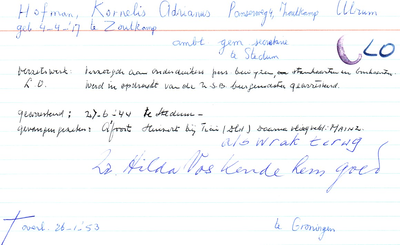 Hofman, Kornelis Adrianus Panserweg 4, Zoutkamp Ulrum
geb 4-4-'17 te Zoutkamp
ambt. gem. secretarie
te Stedum
LO
verzetswerk: bezorgde aan onderduikers pers. bewijzen, en stamkaarten en bonkaarten.
L.O. Werd in opdracht van de N.S.B. burgemeester gearresteerd.
gearresteerd: 27-6-44 te Stedum -
gevangen gezeten: bij daarna MAINZ.
als wrak terug
Hilda Vos kende hem goed
overl. 26-1-'53 te Groningen